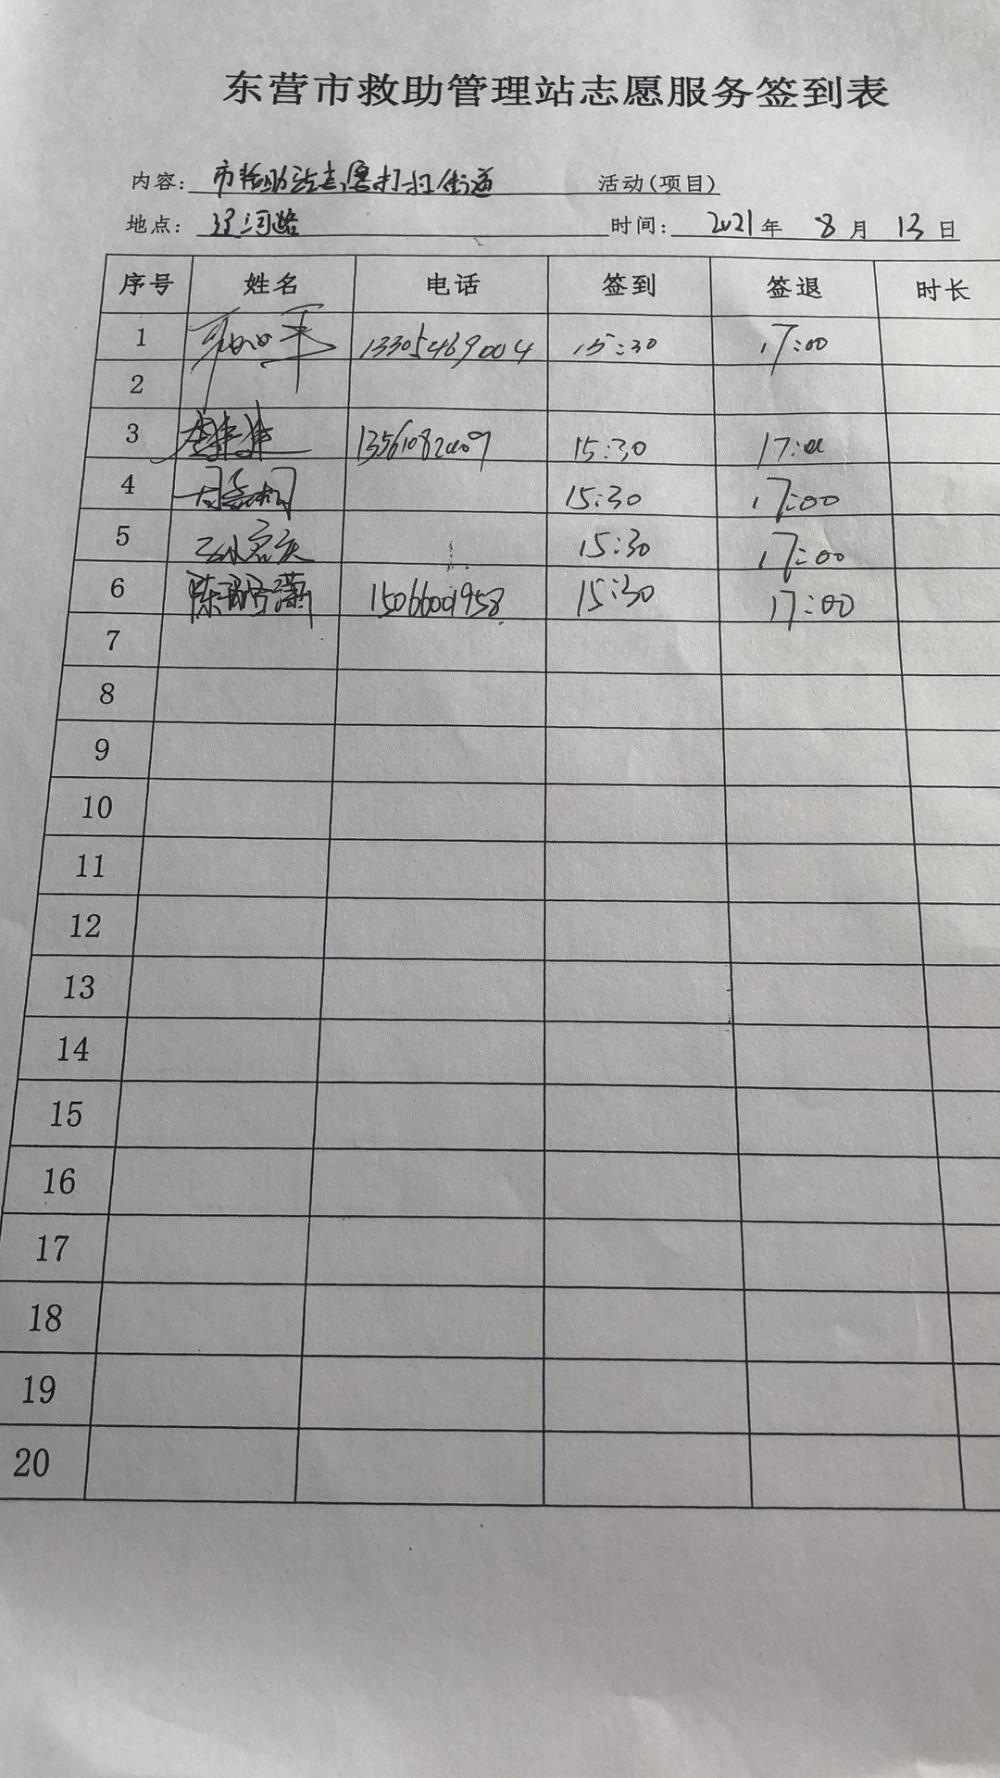 东营市救助管理站志愿服务签到表
内容: 市救助站志愿打扫街道 活动(项目)
地点: 辽河路 时间: 2021年 8月 13日
序号 姓名 电话 签到 签退 时长
1 13305469004 15:30 17:00
2
3 15:30 17:00
4 15:30 17:00
5 15:30 17:00
6 15066001958 15:30 17:00
7
8
9
10
11
12
13
14
15
16
17
18
19
20